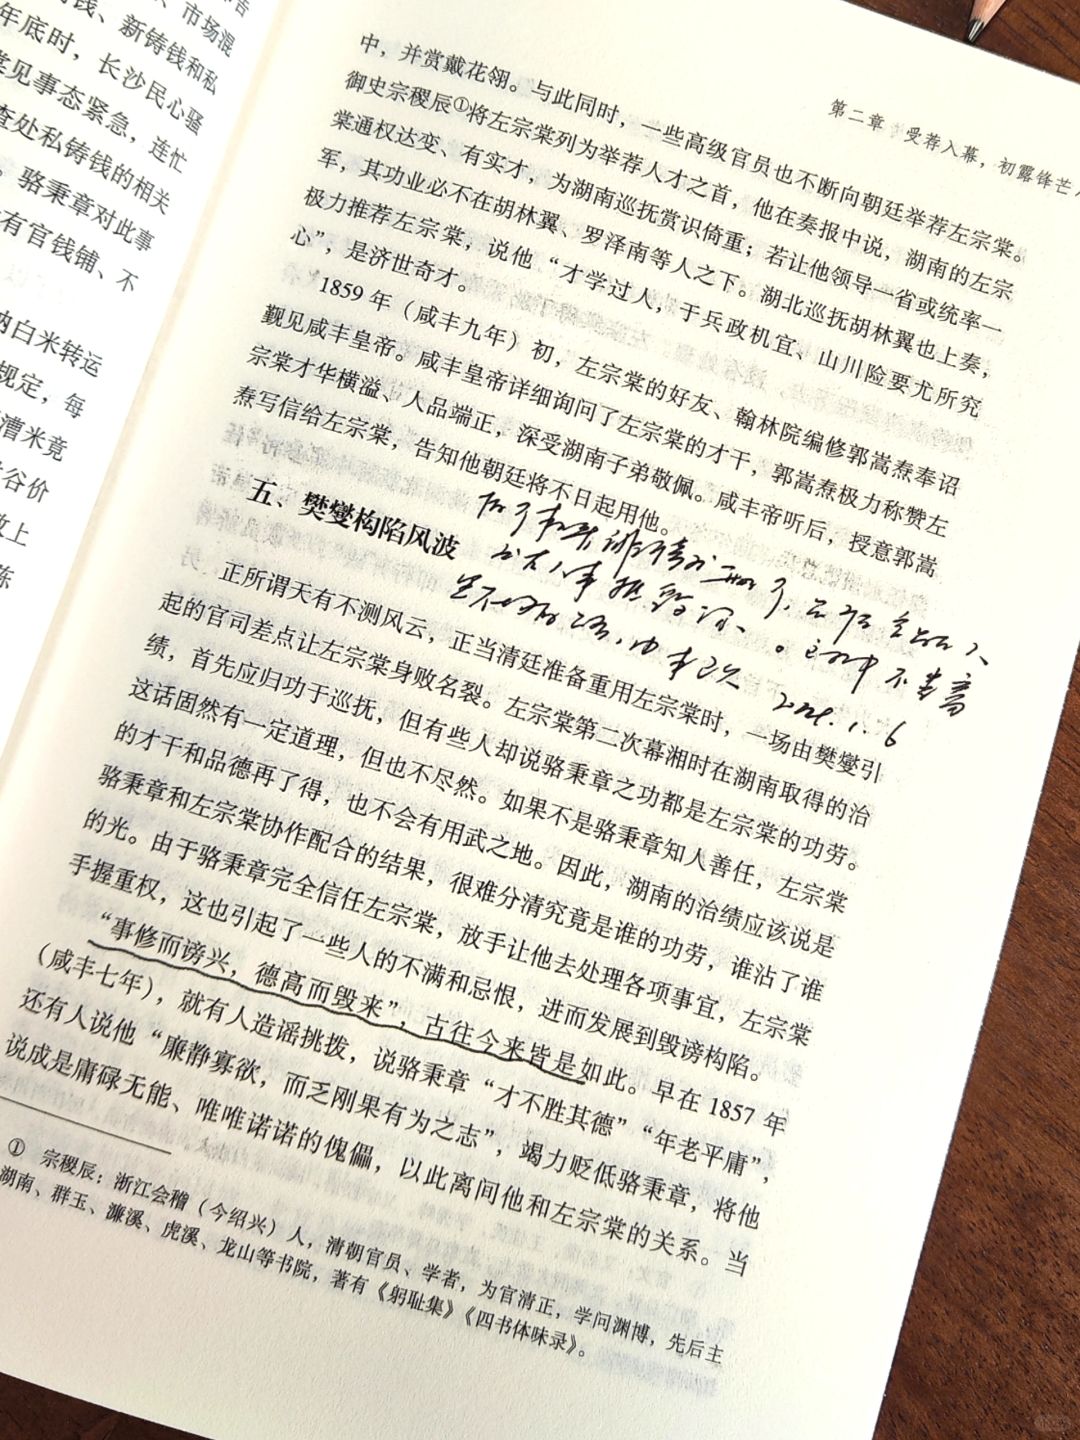 市场混
钱、新铸钱和私
年底时，长沙民心骚
棠见事态紧急，连忙
查处私铸钱的相关
。骆秉章对此事
有官钱铺、不
纳白米转运
规定，每
漕米竟
谷价
收上
第二章 受荐入幕，初露锋芒
中，并赏戴花翎。与此同时，一些高级官员也不断向朝廷举荐左宗棠。
御史宗稷辰①将左宗棠列为举荐人才之首，他在奏报中说，湖南的左宗
棠通权达变、有实才，为湖南巡抚赏识倚重；若让他领导一省或统率一
军，其功业必不在胡林翼、罗泽南等人之下。湖北巡抚胡林翼也上奏，
极力推荐左宗棠，说他“才学过人，于兵政机宜、山川险要尤所究
心”，是济世奇才。
1859年（咸丰九年）初，左宗棠的好友、翰林院编修郭嵩焘奉诏
觐见咸丰皇帝。咸丰皇帝详细询问了左宗棠的才干，郭嵩焘极力称赞左
宗棠才华横溢、人品端正，深受湖南子弟敬佩。咸丰帝听后，授意郭嵩
焘写信给左宗棠，告知他朝廷将不日起用他。
五、樊燮构陷风波
2025.1.6
正所谓天有不测风云，正当清廷准备重用左宗棠时，一场由樊燮引
起的官司差点让左宗棠身败名裂。左宗棠第二次幕湘时在湖南取得的治
绩，首先应归功于巡抚，但有些人却说骆秉章之功都是左宗棠的功劳。
这话固然有一定道理，但也不尽然。如果不是骆秉章知人善任，左宗棠
的才干和品德再了得，也不会有用武之地。因此，湖南的治绩应该说是
骆秉章和左宗棠协作配合的结果，很难分清究竟是谁的功劳，谁沾了谁
的光。由于骆秉章完全信任左宗棠，放手让他去处理各项事宜，左宗棠
手握重权，这也引起了一些人的不满和忌恨，进而发展到毁谤构陷。
“事修而谤兴，德高而毁来”，古往今来皆是如此。早在1857年
（咸丰七年），就有人造谣挑拨，说骆秉章“才不胜其德”“年老平庸”，
还有人说他“廉静寡欲，而乏刚果有为之志”，竭力贬低骆秉章，将他
说成是庸碌无能、唯唯诺诺的傀儡，以此离间他和左宗棠的关系。当
① 宗稷辰：浙江会稽（今绍兴）人，清朝官员、学者，为官清正，学问渊博，先后主
湖南、群玉、濂溪、虎溪、龙山等书院，著有《躬耻集》《四书体味录》。